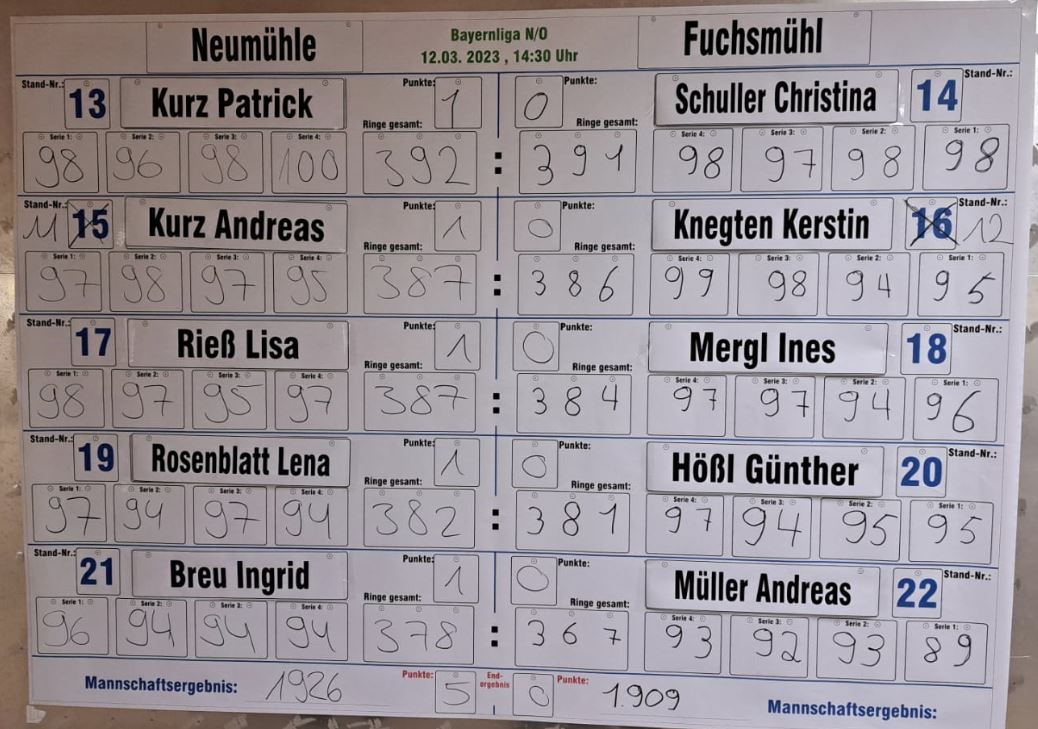 Neumühle Bayernliga N/O Fuchsmühl
12.03. 2023 , 14:30 Uhr
Stand-Nr.: 13 Kurz Patrick Punkte: 1 0 Punkte: Schuller Christina 14 Stand-Nr.:
Ringe gesamt: Ringe gesamt:
Serie 1: Serie 2: Serie 3: Serie 4: Serie 4: Serie 3: Serie 2: Serie 1:
98 96 98 100 392 : 391 98 97 98 98
Stand-Nr.: 11 15 Kurz Andreas Punkte: 1 0 Punkte: Knegten Kerstin 16 12 Stand-Nr.:
Ringe gesamt: Ringe gesamt:
Serie 1: Serie 2: Serie 3: Serie 4: Serie 4: Serie 3: Serie 2: Serie 1:
97 98 97 95 387 : 386 99 98 94 95
Stand-Nr.: 17 Rieß Lisa Punkte: 1 0 Punkte: Mergl Ines 18 Stand-Nr.:
Ringe gesamt: Ringe gesamt:
Serie 1: Serie 2: Serie 3: Serie 4: Serie 4: Serie 3: Serie 2: Serie 1:
98 97 95 97 387 : 384 97 97 94 96
Stand-Nr.: 19 Rosenblatt Lena Punkte: 1 0 Punkte: Hößl Günther 20 Stand-Nr.:
Ringe gesamt: Ringe gesamt:
Serie 1: Serie 2: Serie 3: Serie 4: Serie 4: Serie 3: Serie 2: Serie 1:
97 94 97 94 382 : 381 97 94 95 95
Stand-Nr.: 21 Breu Ingrid Punkte: 1 0 Punkte: Müller Andreas 22 Stand-Nr.:
Ringe gesamt: Ringe gesamt:
Serie 1: Serie 2: Serie 3: Serie 4: Serie 4: Serie 3: Serie 2: Serie 1:
96 94 94 94 378 : 367 93 92 93 89
Mannschaftsergebnis: 1926 Punkte: 5 End- 0 Punkte: 1.909 Mannschaftsergebnis:
ergebnis